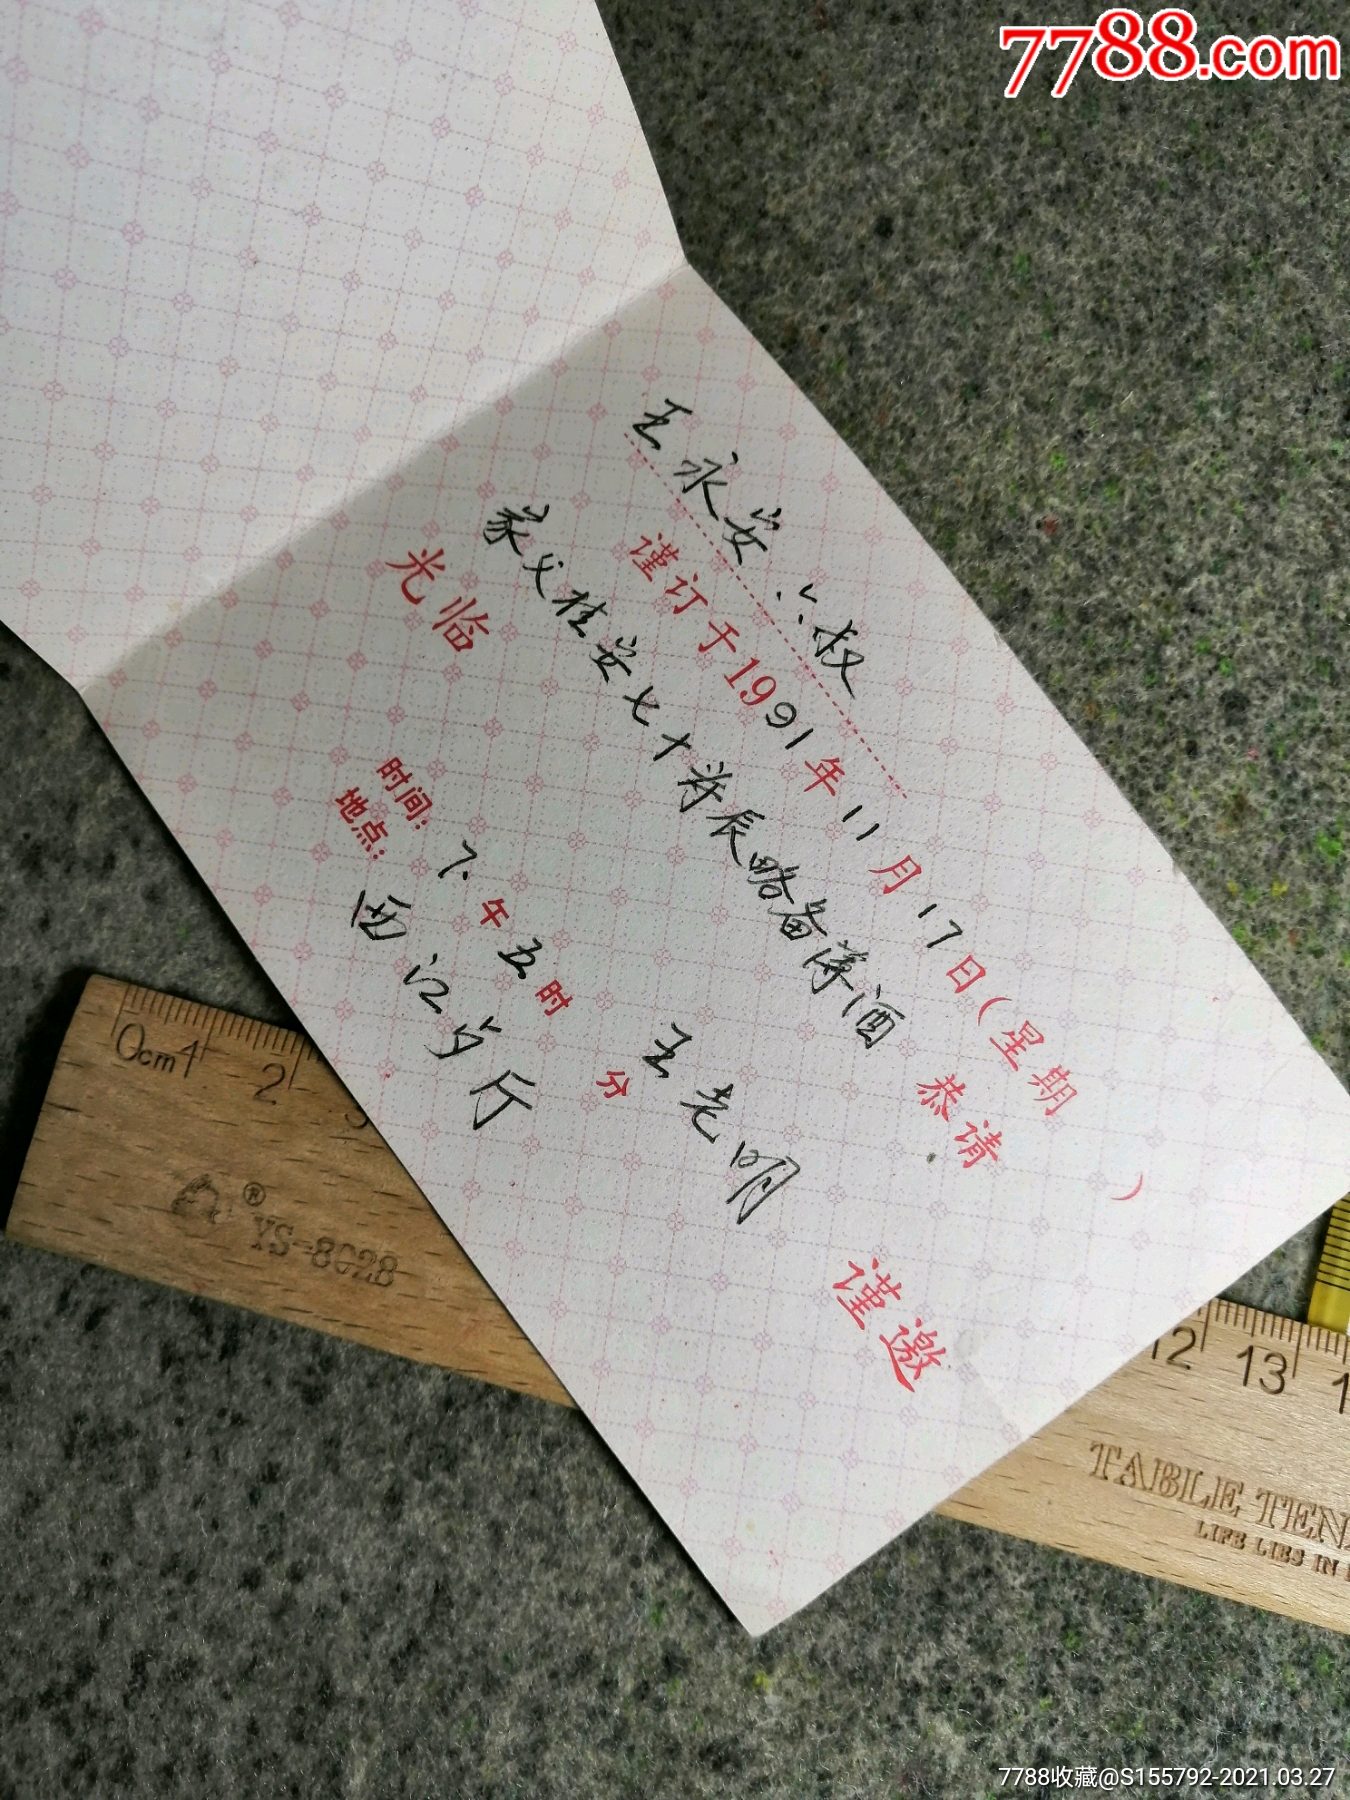 7788.com
王永安 六叔
谨订于1991年11月17日(星期 )
家父桂安七十将辰略备薄酒 恭请
光临
王老明 谨邀
时间: 下午五时 分
地点: 西江岁厅
0cm 1 2 12 13
® YS-8028
TABLE TEN
LIFE LIES IN
7788收藏@S155792-2021.03.27